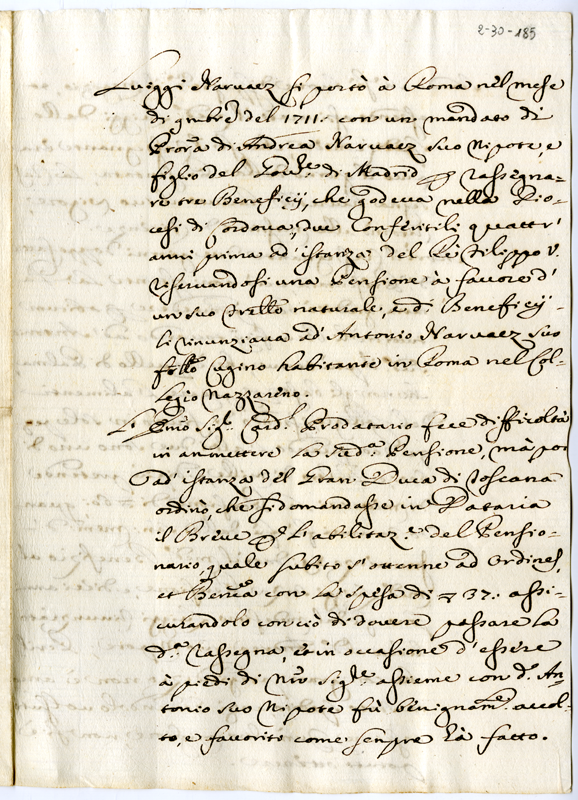 2-30-185
Luiggi Narvaez si portò à Roma nel mese
di 9mbre del 1711. con un mandato di
Procra di Andrea Narvaez suo Nipote, e
figlio del Govre di Madrid p rassegna-
re tre Beneficij, che godeva nella Dio-
cesi di Cordova, due Conferitili quattr'
anni prima ad' istanza del Rè Filippo V.
riservandosi una Pensione à favore d'
un suo frello naturale, e d.i Beneficij
li rinunziava ad' Antonio Narvaez suo
frello Cugino habitante in Roma nel Col-
legio Nazzareno.
L'Emo Sig.r Card.l Prodatario fece difficoltà
in ammettere la sud.a Pensione, mà poi
ad' istanza del Gran Duca di Toscana
ordinò che si domandasse in Dataria
il Breve p l'abilitaz.e del Pensio-
nario, quale subito s'ottenne ad Ordines,
et Beneficia con la spesa di 37: assi-
curandolo con ciò di dovere passare la
d.a rassegna, et in occasione d'essere
à piedi di Nro Sig.re assieme con d.o An-
tonio suo Nipote fù benignam.e accol-
to, e favorito come sempre hà fatto.